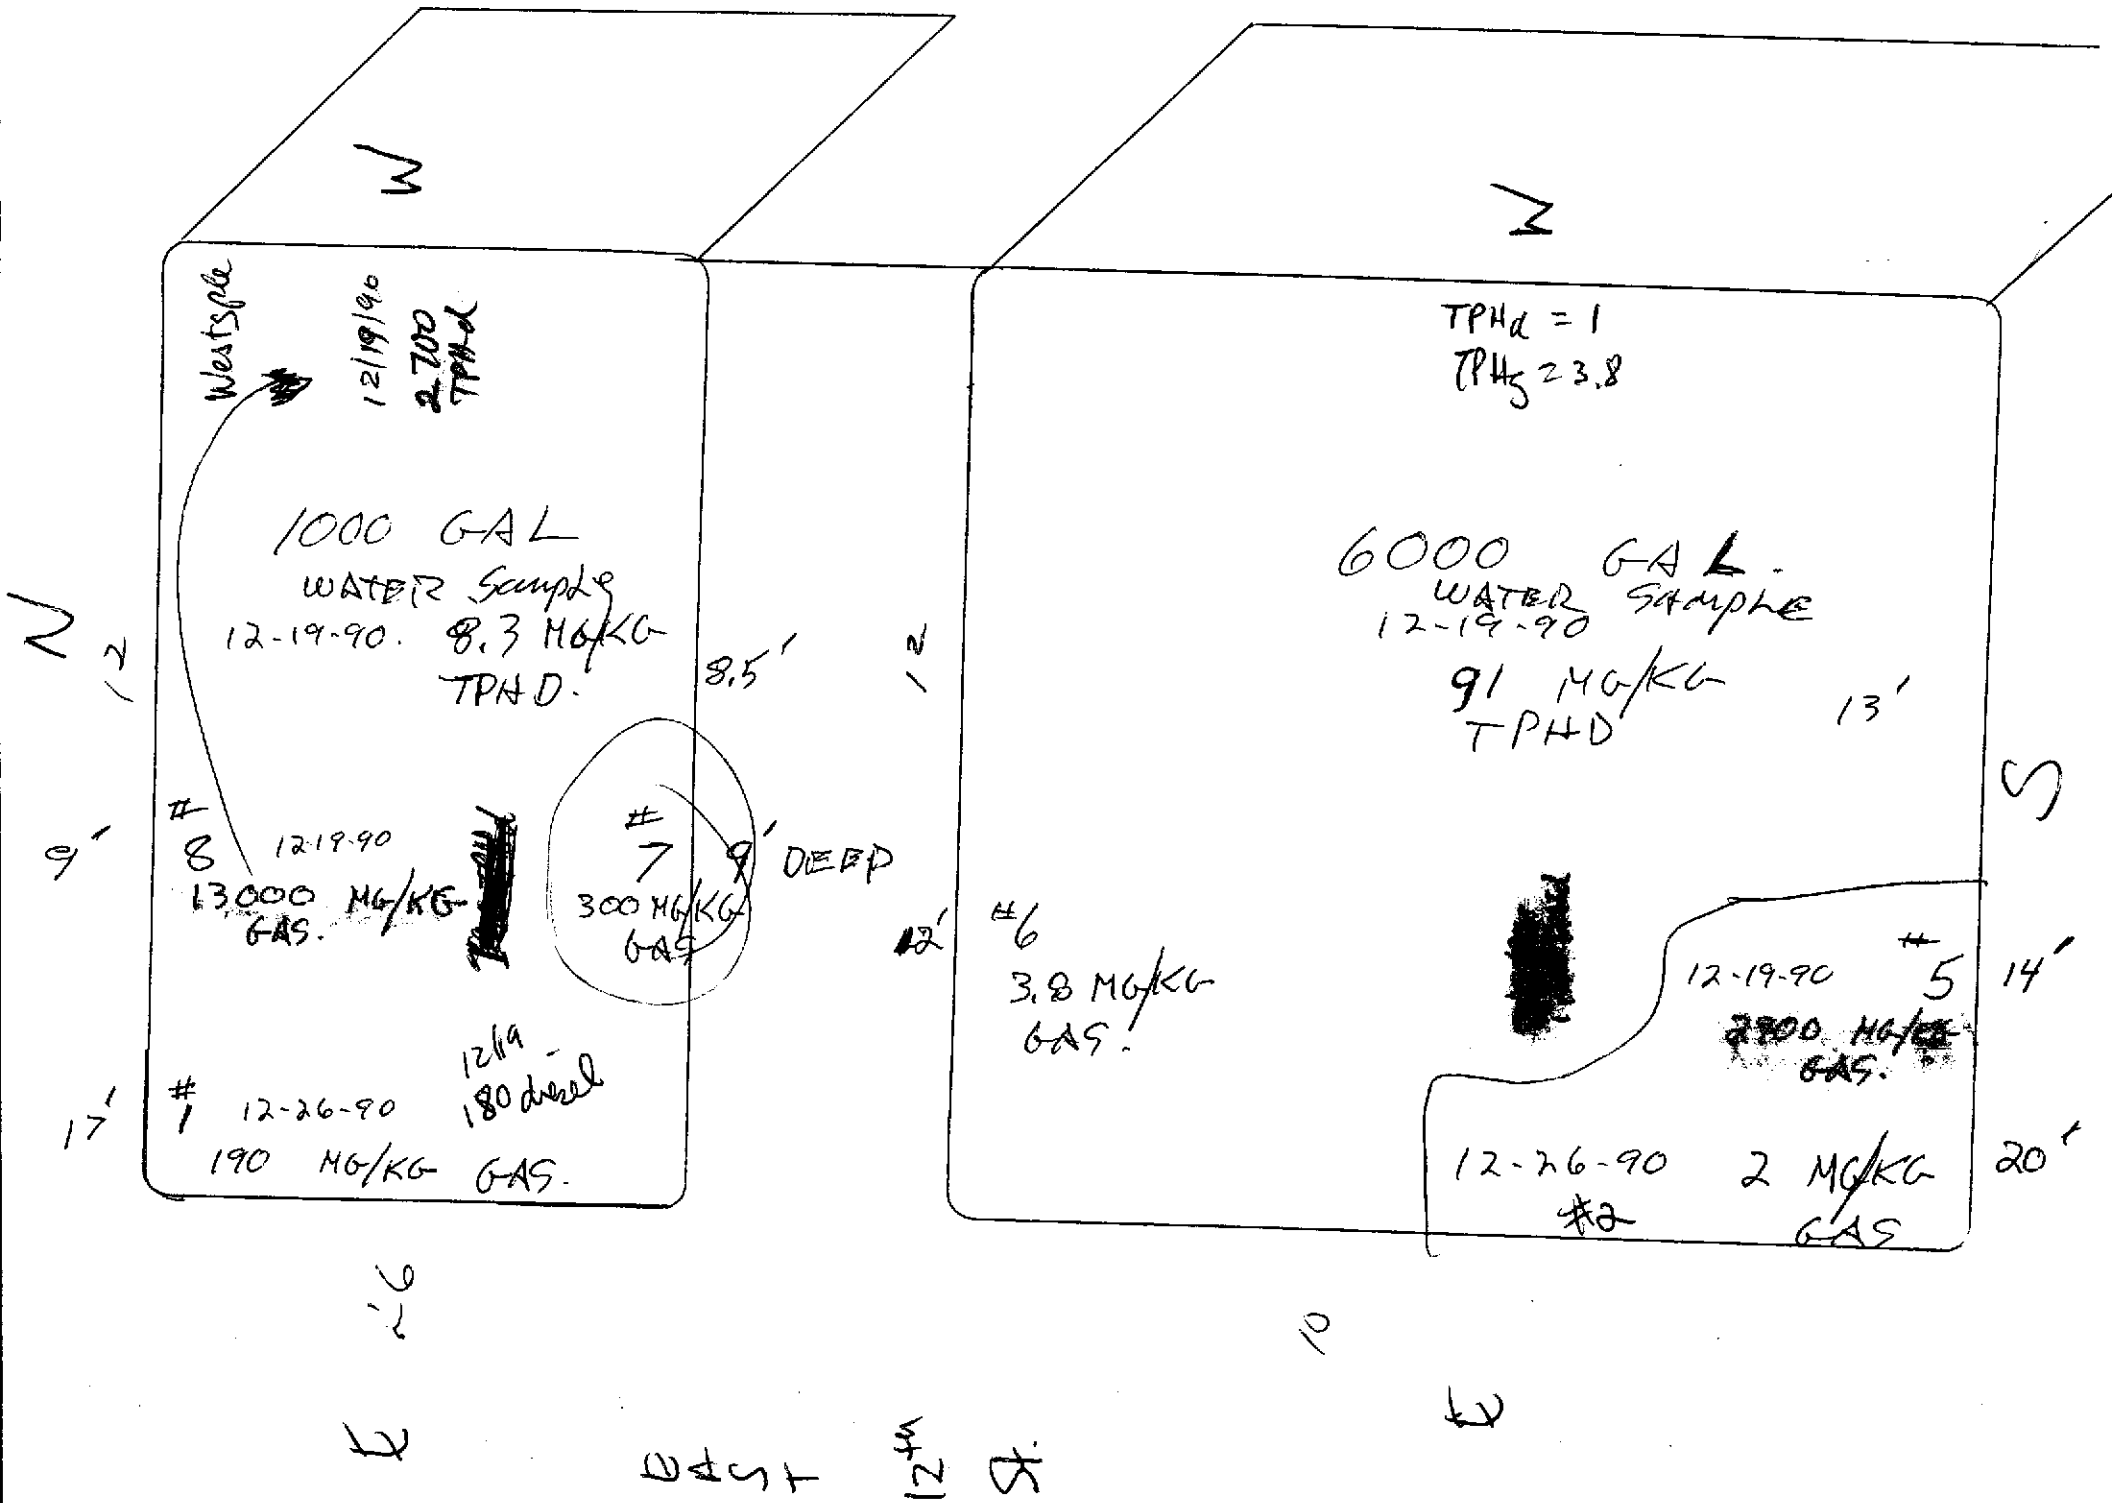 W
W
Westsple
12/19/90
2700
TPHd
TPHd = 1
TPHg = 3.8
1000 GAL
WATER Sample
12-19-90. 8.3 MG/KG
TPHD.
N
12
8.5'
6000 GAL.
WATER SAMPLE
12-19-90
91 MG/KG
TPHD
12
13'
S
9'
#
8 12-19-90
13000 MG/KG
GAS.
#
7 9' DEEP
300 MG/KG
GAS
12'
#6
3.8 MG/KG
GAS.
12-19-90 #
5 14'
MG/KG
GAS.
12/19 -
180 diesel
17'
#
1 12-26-90
190 MG/KG GAS.
12-26-90 2 MG/KG 20'
#2 GAS
10
E
E
EAST 12th St.